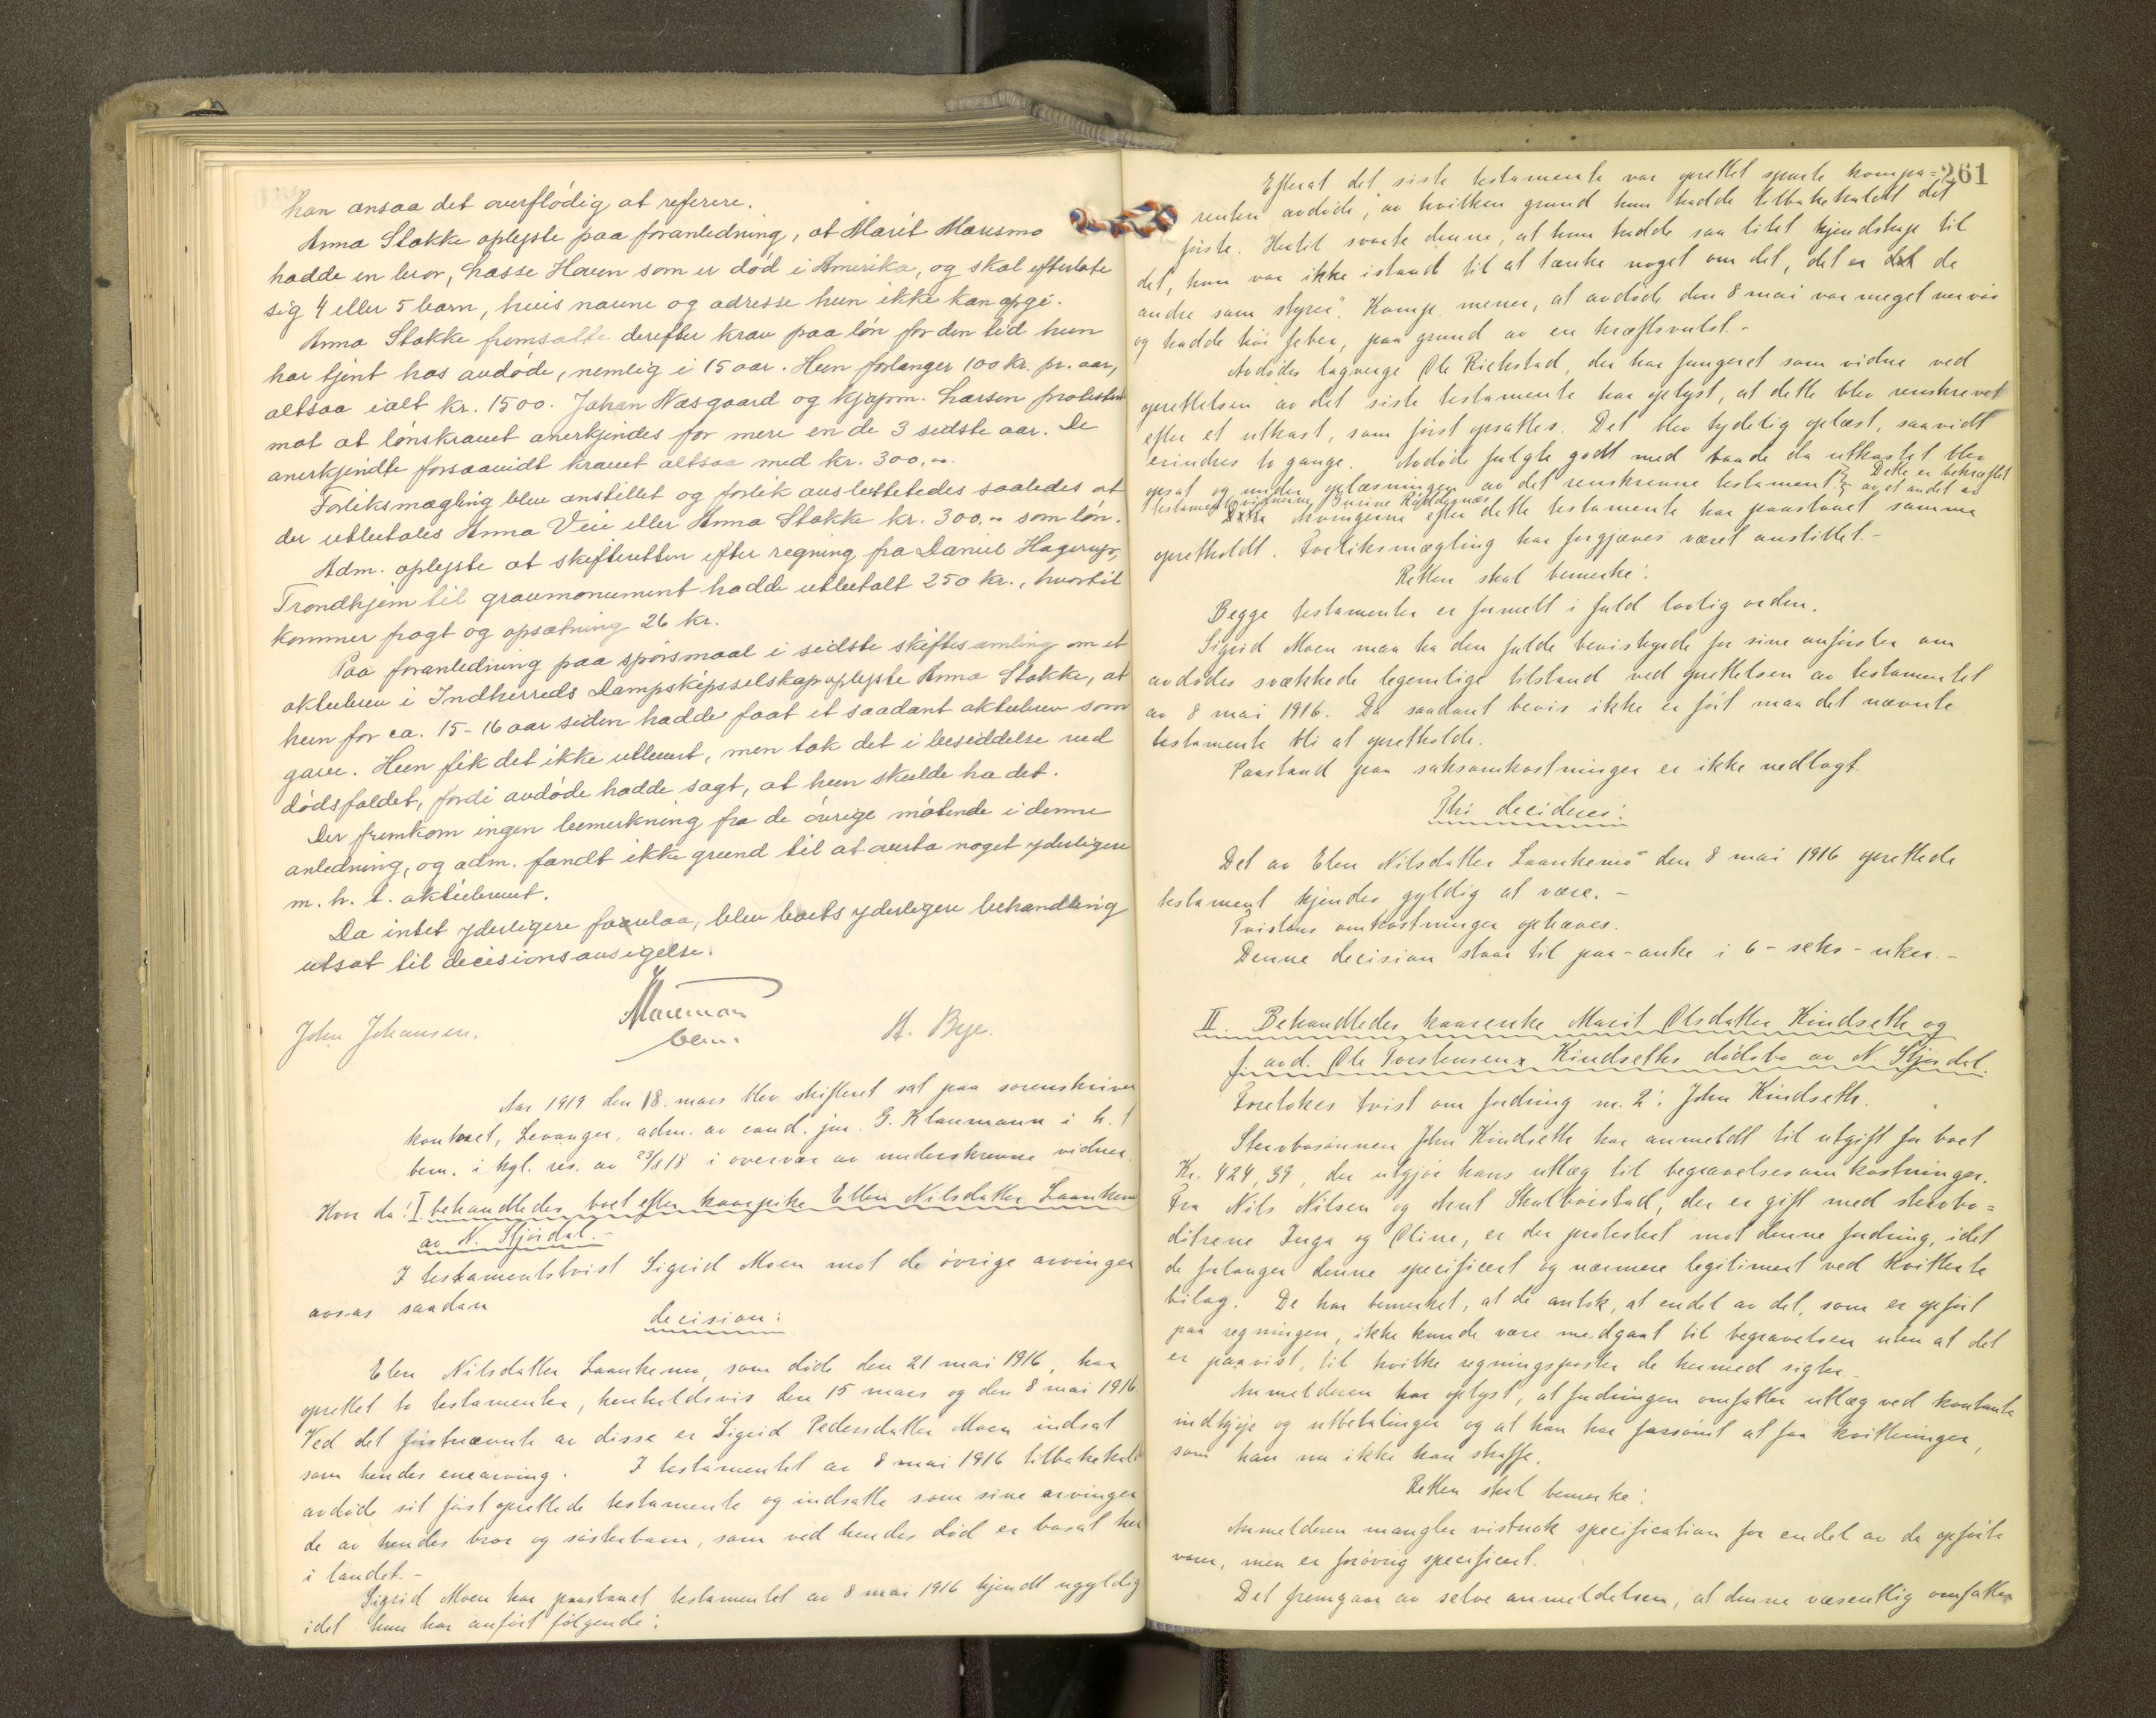 han ansaa det overflödig at referere.
Anna Stokke oplyste paa foranledning, at Marit Mausmo
hadde en bror, Lasse Hauen som er död i Amerika, og skal efterlate
sig 4 eller 5 barn, hvis navne og adresse hun ikke kan opgi.
Anna Stokke fremsatte derefter krav paa lön for den tid hun
har tjent hos avdöde, nemlig i 15 aar. Hun forlanger 100 kr. pr. aar,
altsaa ialt kr. 1500. Johan Næsgaard og kjøpm. Larsen protesterte
mot at lönskravet anerkjendes for mere en de 3 sidste aar. De
anerkjendte forsaavidt kravet altsaa med kr. 300,-.
Forliksmægling blev anstillet og forlik avsluttetedes saaledes at
der utbetales Anna Veie eller Anna Stokke kr. 300,- som lön.
Adm. oplyste at skifteretten efter regning fra Daniel Hagerup,
Trondhjem til gravmonument hadde utbetalt 250 kr., hvortil
kommer fragt og opsætning 26 kr.
Paa foranledning paa spörsmaal i sidste skiftesamling om et
aktiebrev i Indherreds Dampskipsselskap oplyste Anna Stokke, at
hun for ca. 15-16 aar siden hadde faat et saadant aktiebrev som
gave. Hun fik det ikke utlevert, men tok det i besiddelse ved
dödsfaldet, fordi avdöde hadde sagt, at hun skulde ha det.
Der fremkom ingen bemerkning fra de övrige mötende i denne
anledning, og adm. fandt ikke grund til at averta noget yderligere
m. h. t. aktiebrevet.
Da intet yderligere forelaa, blev boets yderligere behandling
utsat til decisionsavsigelse.
Klaumann
bem.
John Johansen.
A. Bye.
Aar 1919 den 18. mars blev skifteret sat paa sorenskriver
kontoret, Levanger, adm. av cand. jur. G. Klaumann i h. t
bem. i kgl. res. av 23/8 18 i overvær av underskrevne vidner.
Hvor da: I. behandledes boet efter kaarpike Ellen Nilsdatter Laankemo
av N. Stjördal.-
I testamentstvist Sigrid Moen mot de övrige arvinger
avsas saadan
decision:
Elen Nilsdatter Laankemo, som döde den 21 mai 1916, har
oprettet to testamenter, henholdsvis den 15 mars og den 8 mai 1916.
Ved det förstnævnte av disse er Sigrid Pedersdatter Moen indsat
som hendes enearving. I testamentet av 8 mai 1916 tilbakekaldt
avdöde sit först oprettede testamente og indsatte som sine arvinger
de av hendes bror og sösterbarn, som ved hendes död er bosat her
i landet.-
Sigrid Moen har paastaaet testamentet av 8 mai 1916 kjendt ugyldig
idet hun har anført følgende:
261
Efterat det siste testamente var oprettet spurte kompa=
renten avdöde, av hvilken grund hun hadde tilbakekaldt det
förste. Hertil svarte denne, at hun hadde saa litet kjendskap til
det, hun var ikke istand til at tænke noget om det, det er de
andre som styrer". Komp. mener, at avdöde den 8 mai var meget nervös
og hadde höi feber, paa grund av en kræftsvulst.-
Avdödes lagverge Ole Richstad, der har fungeret som vidne ved
oprettelsen av det siste testamente har oplyst, at dette blev renskrevet
efter et utkast, som först opsattes. Det blev tydelig oplæst, saavidt
erindres to gange. Avdöde fulgte godt med baade da utkastet blev
opsat og under oplæsningen av det renskrevne testament. Dette er bekræftet
av et andet av
testamentsvidnene, Gurine
Arvingerne efter dette testamente har paastaaet samme
opretholdt. Forliksmægling har forgjæves været anstillet.-
Retten skal bemerke:
Begge testamenter er formelt i fuld lovlig orden.
Sigrid Moen maa ha den fulde bevisbyrde for sine anförsler om
avdödes svækkede legemlige tilstand ved oprettelsen av testamentet
av 8 mai 1916. Da saadant bevis ikke er fört maa det nævnte
testamente bli at opretholde.
Paastand paa saksomkostninger er ikke nedlagt.
Thi decideres:
Det av Elen Nilsdatter Laankemo den 8 mai 1916 oprettede
testament kjendes gyldig at være.-
Tvistens omkostninger ophæves.
Denne decision staar til paa-anke i 6 - seks - uker.-
II. Behandledes kaarenke Marit Olsdatter Kindseth og
f. avd. Ole Torstensens Kindseths dödsbo av N. Stjördal.
Foretokes tvist om fordring nr. 2: John Kindseth.
Stervbosönnen John Kindseth har anmeldt til utgift for boet
Kr. 424,39, der utgjör hans utlæg til begravelsesomkostninger.
Fra Nils Nilsen og Arnt Skatvoistad, der er gift med stervbo=
dötrene Inga og Oline, er der protestert mot denne fordring, idet
de forlanger denne specificert og nærmere legitimert ved kvitterte
bilag. De har bemerket, at de antok, at endel av det, som er opfört
paa regningen, ikke kunde være medgaat til begravelsen uten at det
er paavist, til hvilke regningsposter de hermed sigter.-
Anmelderen har oplyst, at fordringen omfatter utlæg ved kontante
indkjöp og utbetalinger og at han har forsömt at faa kvitteringer,
som han nu ikke kan skaffe.
Retten skal bemerke:
Anmelderen mangler vistnok specification for endel av de opförte
varer, men er forövrig specificert.
Det fremgaar av selve anmeldelsen, at denne væsentlig omfatter